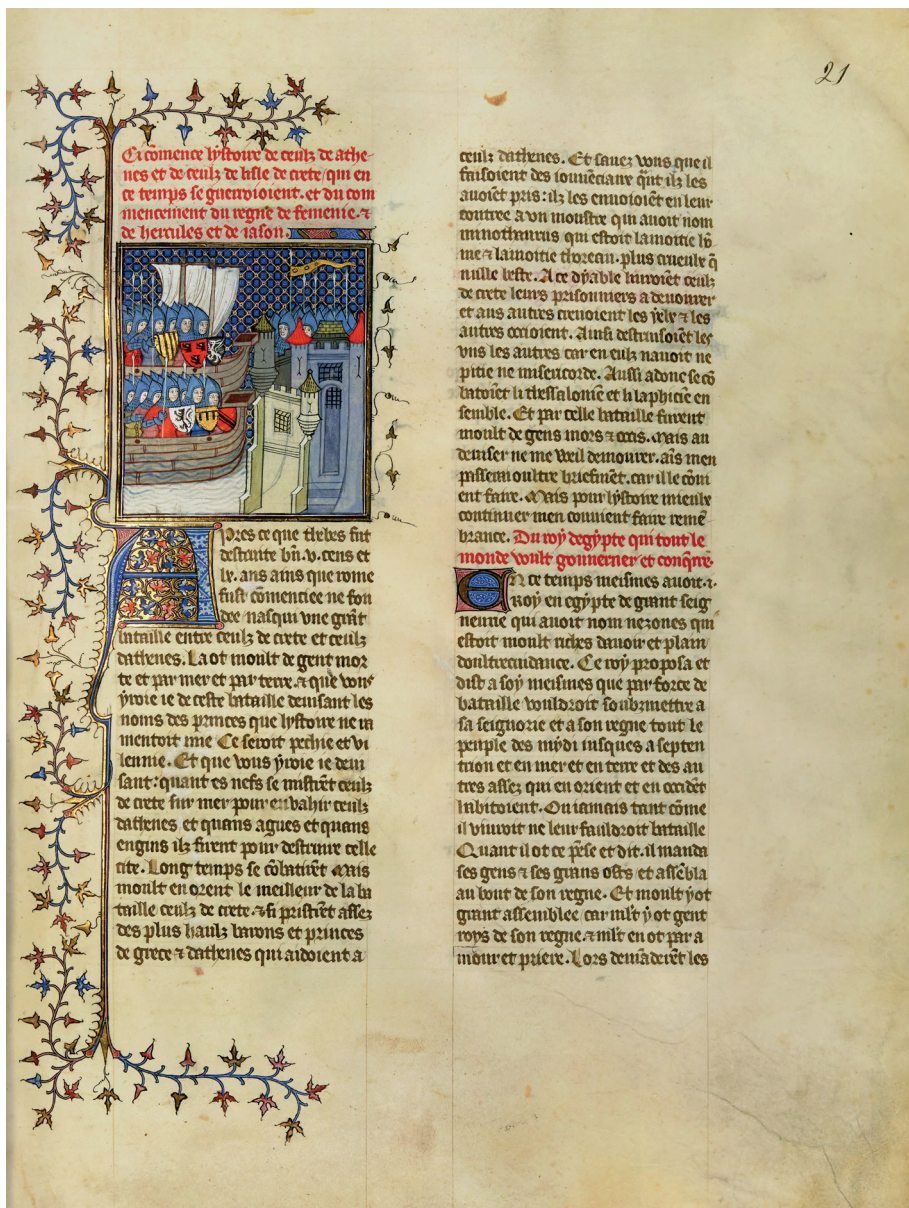 21
Ci cōmence lystoire de ceulz de athe-
nes et de ceulz de lisle de crete / qui en
ce temps se guerroioient. et du com
mencement du regne de femenie. ⁊
de hercules et de iason.
Apres ce que thebes fut
destruite bn̄. v. cens et
lx. ans ains que rome
fust cōmenciee ne fon
dee nasqui vne grāt
bataille entre ceulz de crete et ceulz
dathenes. La ot moult de gent mor
te et par mer et par terre. ⁊ que vous
yroie ie de ceste bataille deuisant les
noms des princes que lystoire ne ra
mentoit mie Ce seroit pechie et vi
lennie. Et que vous yroie ie deui
sant: quant es nefs se mistrēt ceulz
de crete sur mer pour enuahir ceulz
dathenes et quans agues et quans
engins ilz firent pour destruire celle
cite. Long temps se cōbatirēt Mais
moult en orent le meilleur de la ba
taille ceulz de crete. ⁊ si pristrēt assez
des plus haulz barons et princes
de grece ⁊ dathenes qui aidoient a
ceulz dathenes. Et sauez vous que il
faisoient des iouuēciaux qn̄t ilz les
auoiēt pris: ilz les enuoioiēt en leur
contree a vn moustre qui auoit nom
minothaurus qui estoit la moitie hō
me ⁊ la moitie thoreau. plus crueule q̄
nulle beste. A ce dyable liuroiēt ceulz
de crete leurs prisonniers a deuourer
et aus autres creuoient les yelx ⁊ les
autres occioient. Ainsi destruisoiēt les
vns les autres car en eulz nauoit ne
pitie ne misericorde. Aussi adonc se cō
batoiēt li thessaloniē et li laphiciē en
semble. Et par celle bataille furent
moult de gens mors ⁊ occis. Mais au
deuiser ne me vueil demourer. ains men
passerai oultre briefmēt. car il le conui
ent faire. Mais pour lystoire mieulx
continuer men couuient faire remē
brance. Du roy degypte qui tout le
monde voult gouuerner et conq̄rre.
En ce temps meismes auoit .i.
roy en egypte de grant seig
neurie qui auoit nom nezones qui
estoit moult riches dauoir et plain
doultrecuidance. Ce roy proposa et
dist a soy meismes que par force de
bataille vouldroit soubzmettre a
sa seignorie et a son regne tout le
peuple des mydi iusques a septen
trion et en mer et en terre et des au
tres assez qui en orient et en occidēt
habitoient. Ou iamais tant cōme
il viuroit ne leur fauldroit bataille
Quant il ot ce pēse et dit. il manda
ses gens ⁊ ses grans osts et assēbla
au bout de son regne. Et moult y ot
grant assemblee car mlt̄ y ot gent
roys de son regne. ⁊ mlt̄ en ot par a
mour et priere. Lors demāderēt les